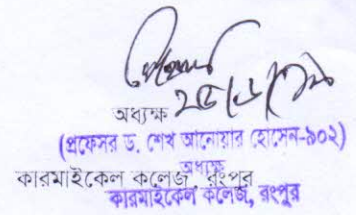 অধ্যক্ষ
(প্রফেসর ড. শেখ আনোয়ার হোসেন-৯০২)
অধ্যক্ষ
কারমাইকেল কলেজ, রংপুর
কারমাইকেল কলেজ, রংপুর